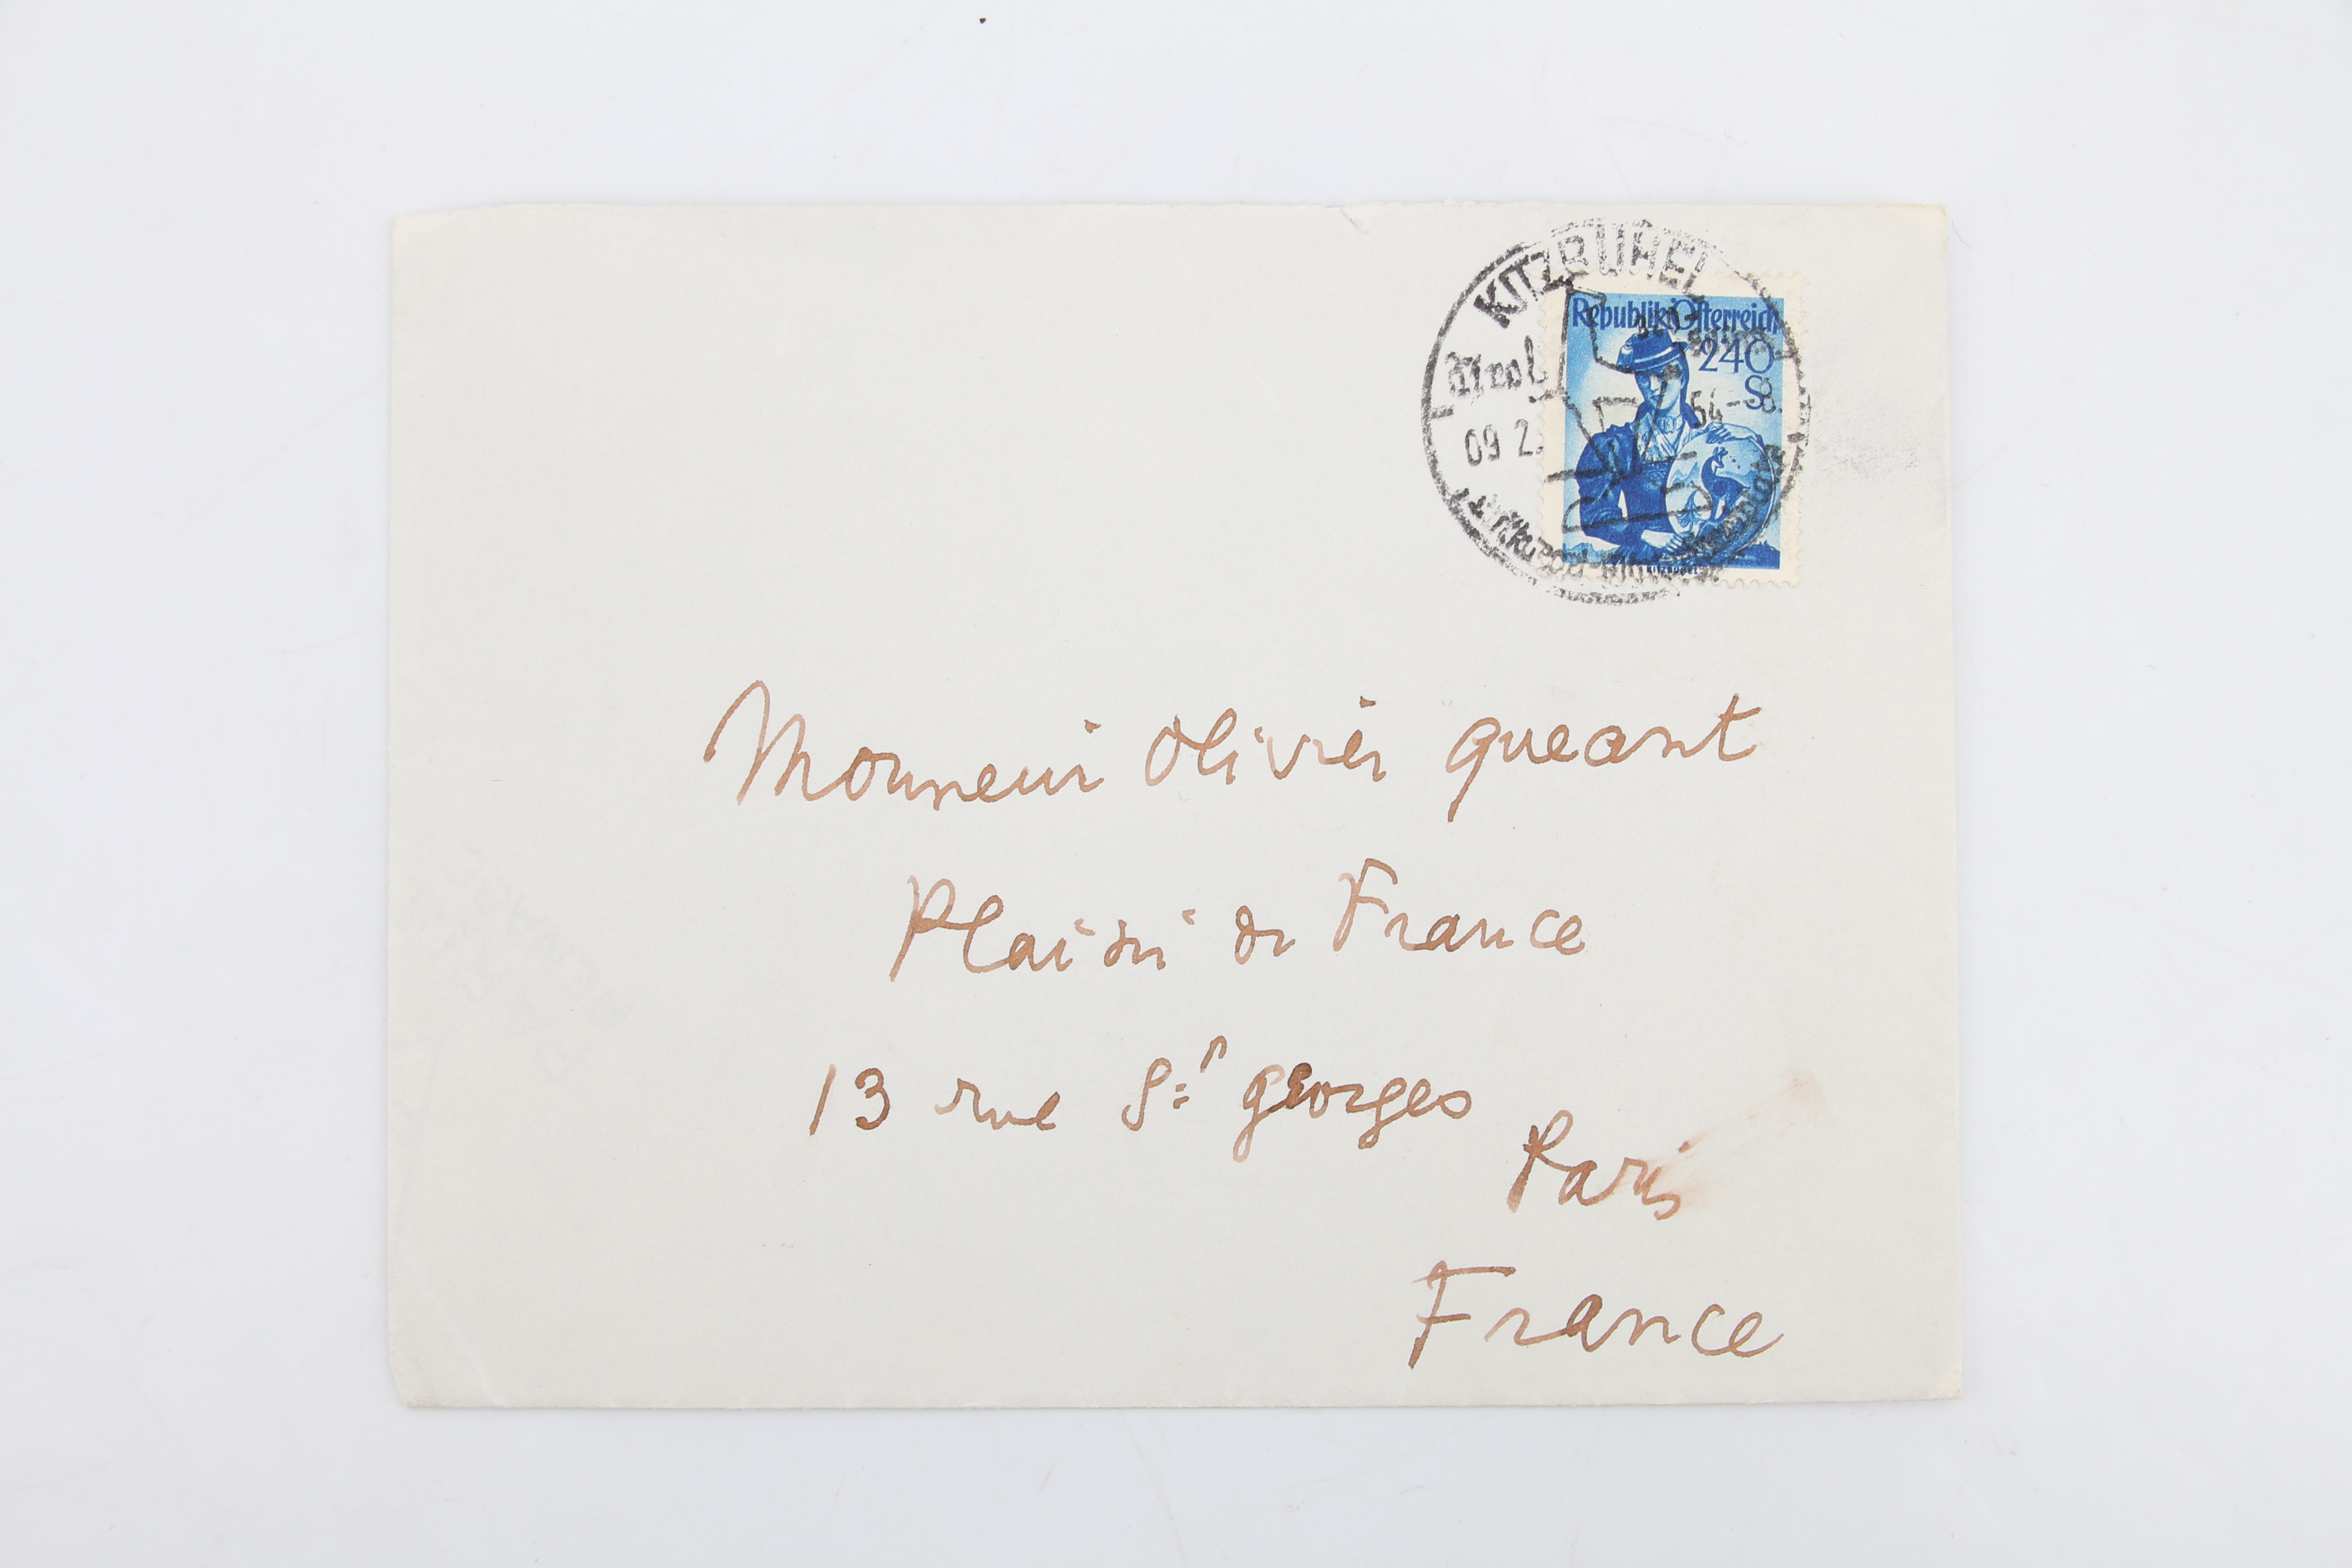 KITZBÜHEL
Republik Österreich
240
S
Tirol
09 2.
54-8.
Monsieur Olivier queant
Plaisir de France
13 rue St georges
Paris
France